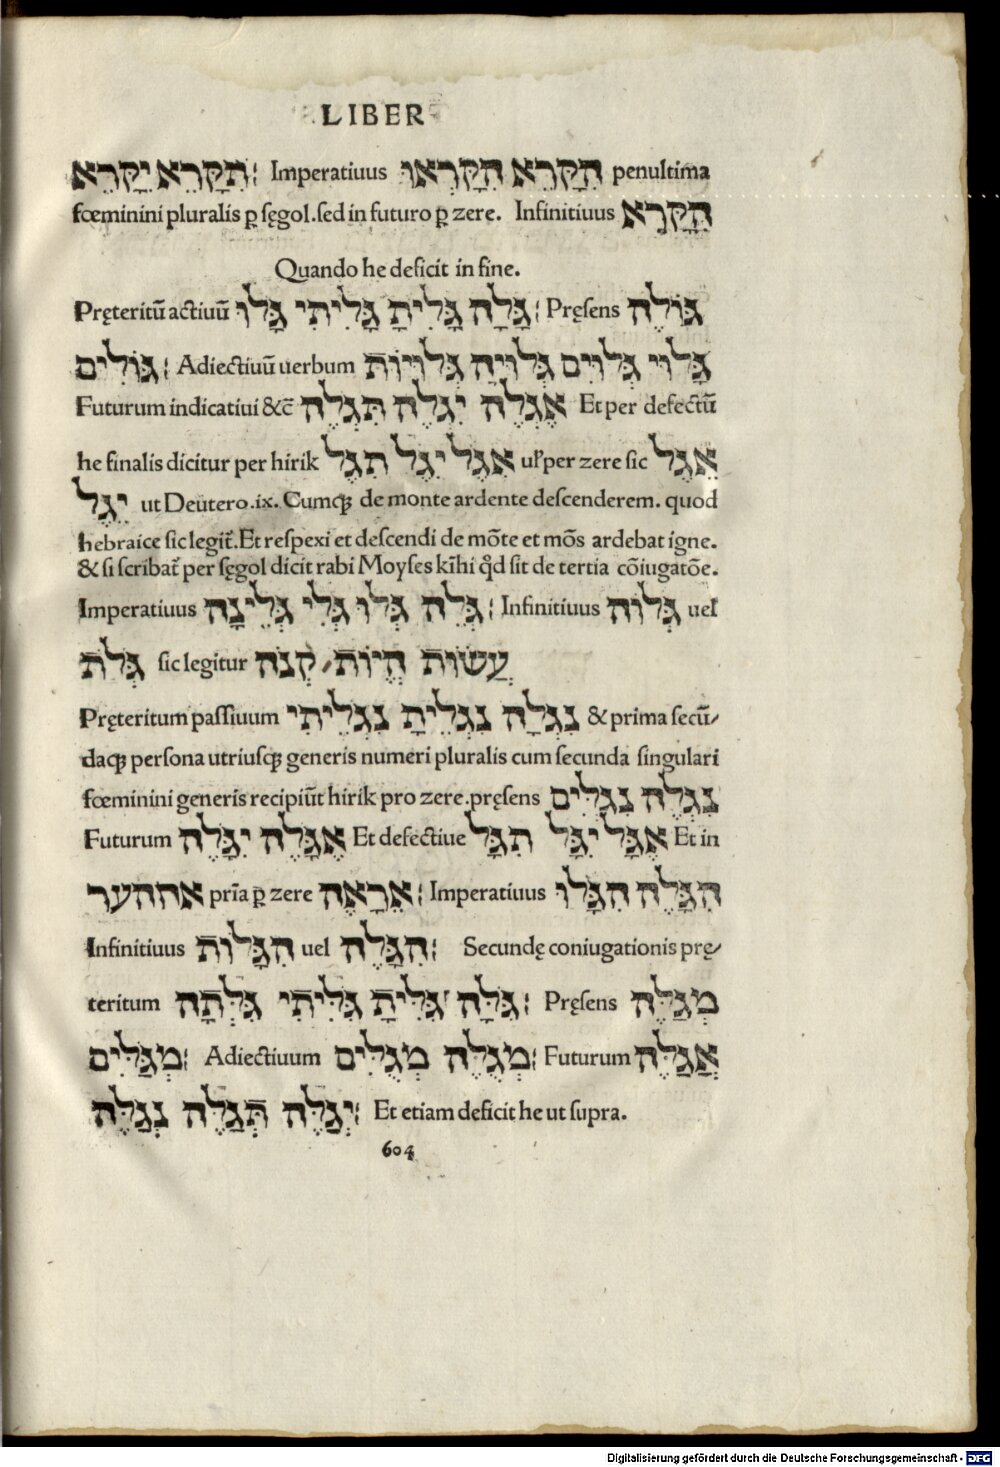 LIBER
תִקָּרֵא יִקָּרֵא: Imperatiuus הִקָּרֵא הִקָּרְאוּ penultima
fœminini pluralis ꝑ ſęgol.ſed in futuro ꝑ zere. Infinitiuus הִקָּרֵא
Quando he deficit in fine.
Pręteritū actiuū גָּלָה גָּלִיתָ גָּלִיתִי גָּלוּ: Pręſens גּוֹלֶה
גּוֹלִים: Adiectiuū uerbum גָּלוּי גְּלוּיִם גְּלוּיָה גְּלוּיוֹת
Futurum indicatiui &c̄ אֶגְלֶה יִגְלֶה תִּגְלֶה Et per defectū
he finalis dicitur per hirik אִגֶל יִגֶל תִגֶל uł per zere ſic אֵגֶל
יֵגֶל ut Deutero.ix. Cumqꝫ de monte ardente deſcenderem. quod
hebraice ſic legit̄.Et reſpexi et deſcendi de mōte et mōs ardebat igne.
& ſi ſcribat̄ per ſęgol dicit rabi Moyſes kīhi qd̄ ſit de tertia cōiugatōe.
Imperatiuus גְּלֵה גְּלוּ גְּלִי גְּלֵינָה: Infinitiuus גְּלוֹה uel
גְּלֹת ſic legitur עֲשׂוֹת הֱיוֹת/ קְנֹה
Pręteritum paſſiuum נִגְלָה נִגְלֵיתָ נִגְלֵיתִי & prima ſecū/
daqꝫ perſona utriuſqꝫ generis numeri pluralis cum ſecunda ſingulari
fœminini generis recipiūt hirik pro zere.pręſens נִגְלֶה נִגְלִים
Futurum אֶגָּלֶה יִגָּלֶה Et defectiue אֶגָּל יִגָּל תִגָּל Et in
אההער prīa ꝑ zere אֵרָאֶה: Imperatiuus הִגָּלֵה הִגָּלוּ
Infinitiuus הִגָּלוֹת uel הִגָּלֶה: Secundę coniugationis pre/
teritum גִּלָּה גִּלִּיתָ גִּלִּיתִי גִּלְּתָה: Pręſens מְגַלֶּה
מְגַלִּים: Adiectiuum מְגֻלֶּה מְגֻלִּים: Futurum אֲגַלֶּה
יְגַלֶּה תְּגַלֶּה נְגַלֶּה: Et etiam deficit he ut ſupra.
604
Digitalisierung gefördert durch die Deutsche Forschungsgemeinschaft - DFG